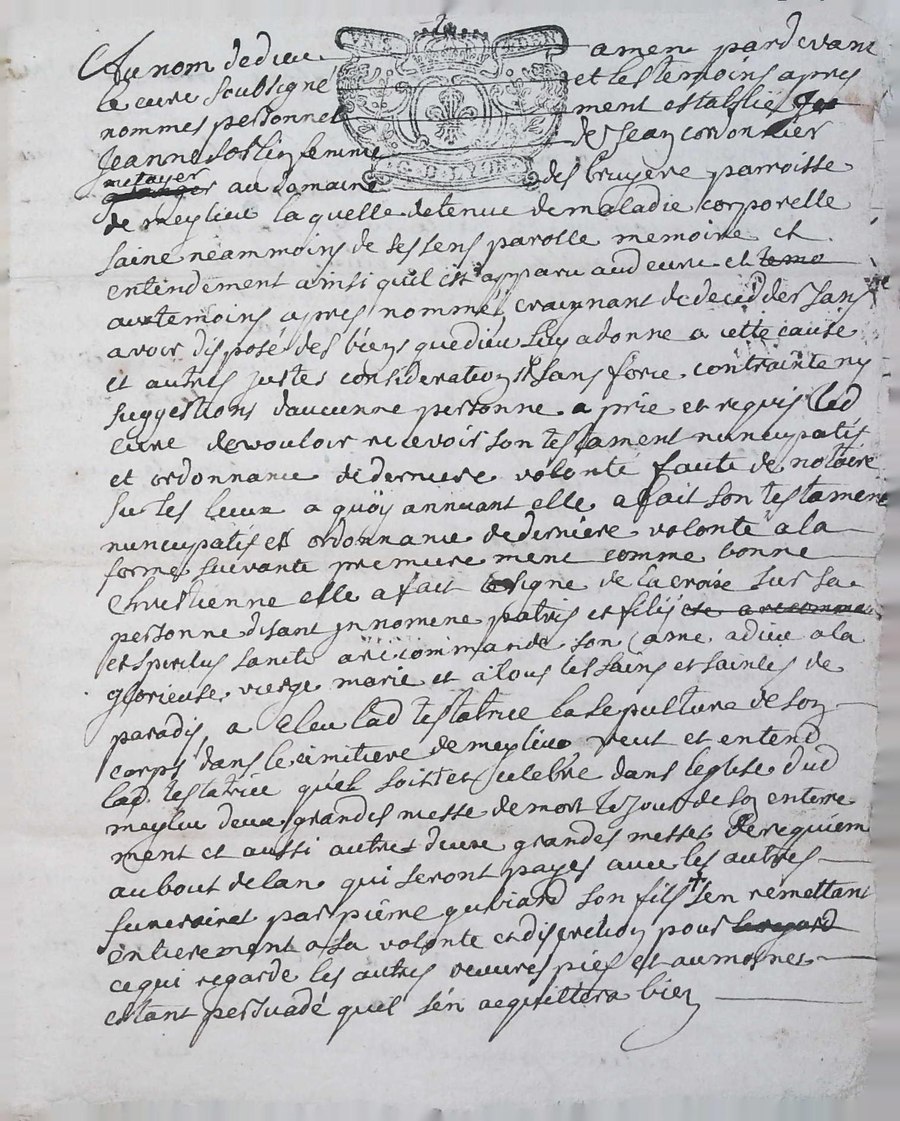 Au nom de dieu amen pardevant
VN S DEN
G. D. LYON
le curé soubsigné et les temoins apres
nommes personnel ment establies
jeanne sorlin femme de jean coronnier
metayer au domaine des bruyere parroisse
de meylieu laquelle detenue de maladie corporelle
saine neammoins de ses sens parolle memoire et
entendement ainsi quil est apparu aud curé et temo
aux temoins apres nommé craignant de decedder sans
avoir disposé des biens que dieu luy a donne a cette cause
et autres justes considerations et sans force contrainte ny
suggestions daucunne personne a prie et requis led
curé de vouloir recevoir son testament nuncupatif
et ordonnance de derniere volonté faute de notaire
sur les lieux a quoy annuant elle a fait son testament
nuncupatif et ordonnance de derniere volonté a la
forme suivante premierement comme bonne
chrestienne elle a fait le signe de la croix sur sa
personne disant jn nomine patris et filij
et spiritus sancti a recommandé son ame a dieu a la
glorieuse vierge marie et a tous les sains et saintes de
paradis, a eleu lad testatrice la sepulture de son
corps dans le cimitiere de meylieu veut et entend
lad. testatrice quel soit celebré dans leglise dud
meylieu deux grandes messe de mort le jour de son enterre
ment et aussi autres deux grandes messes de requiem
au bout de lan qui seront payes avec les autres
funeraires par pierre gubiard son fils + sen remettant
entierement a sa volonte et discretion pour le regard
ce qui regarde les autres oeuvres pies et aumones
estant persuadé quel sen acquittera bien